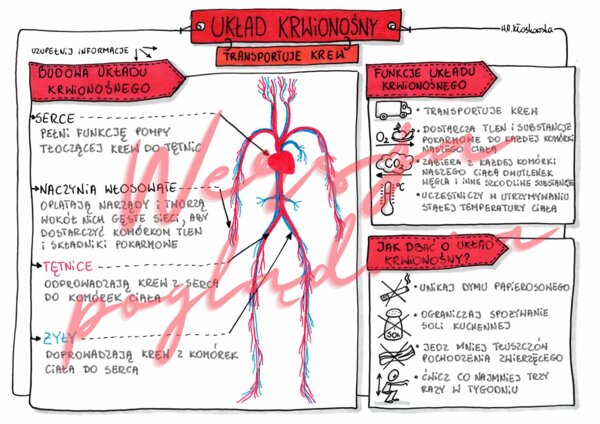 UKŁAD KRWIONOŚNY
TRANSPORTUJE KREW
H.A.Kłoskowska
UZUPEŁNIJ INFORMACJE
BUDOWA UKŁADU
KRWIONOŚNEGO
SERCE
PEŁNI FUNKCJĘ POMPY
TŁOCZĄCEJ KREW DO TĘTNIC
NACZYNIA WŁOSOWATE
OPLATAJĄ NARZĄDY I TWORZĄ
WOKÓŁ NICH GĘSTE SIECI, ABY
DOSTARCZYĆ KOMÓRKOM TLEN
I SKŁADNIKI POKARMOWE
TĘTNICE
ODPROWADZAJĄ KREW Z SERCA
DO KOMÓREK CIAŁA
ŻYŁY
DOPROWADZAJĄ KREW Z KOMÓREK
CIAŁA DO SERCA
FUNKCJE UKŁADU
KRWIONOŚNEGO
TRANSPORTUJE KREW
O₂
DOSTARCZA TLEN I SUBSTANCJE
POKARMOWE DO KAŻDEJ KOMÓRKI
NASZEGO CIAŁA
CO₂
ZABIERA Z KAŻDEJ KOMÓRKI
NASZEGO CIAŁA DWUTLENEK
WĘGLA I INNE SZKODLIWE SUBSTANCJE
°C
UCZESTNICZY W UTRZYMYWANIU
STAŁEJ TEMPERATURY CIAŁA
JAK DBAĆ O UKŁAD
KRWIONOŚNY?
UNIKAJ DYMU PAPIEROSOWEGO
SÓL
OGRANICZAJ SPOŻYWANIE
SOLI KUCHENNEJ
JEDZ MNIEJ TŁUSZCZÓW
POCHODZENIA ZWIERZĘCEGO
ĆWICZ CO NAJMNIEJ TRZY
RAZY W TYGODNIU
Wersja
poglądowa